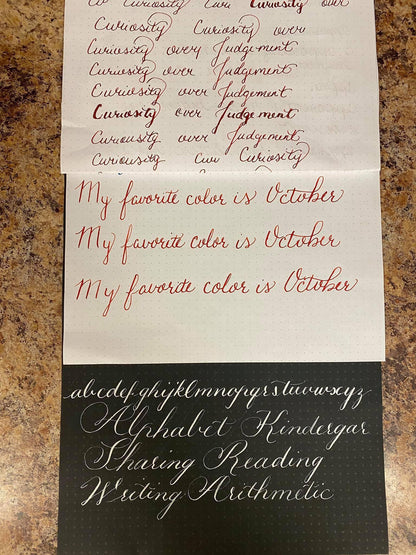 Curiosity Curi Curiosity over
Curiosity Curiosity over
Curiosity over Judgement
Curiosity over Judgement
Curiosity over Judgement
Curiosity over Judgement
Curiousity over Judgement
Curiousity Cur Curiosity
My favorite color is October
My favorite color is October
My favorite color is October
abcdefghijklmnopqrstuvwxyz
Alphabet Kindergar
Sharing Reading
Writing Arithmetic